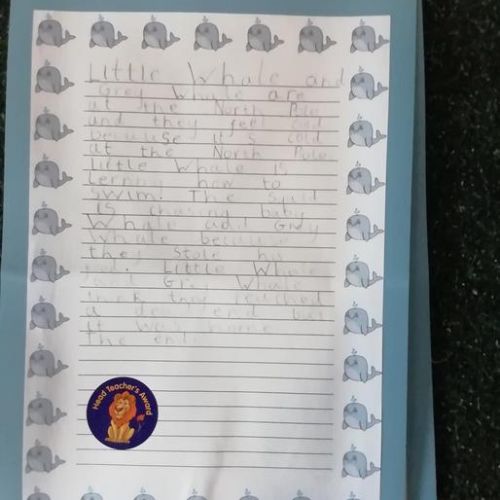 Little Whale and
Grey Whale are
at the North Pole
and they feel
because it s cold
at the North Pole.
Little Whale is
lerning how to
swim. The squid
is chasing baby
Whale and Grey
Whale because
they stole his
Little Whale
and Grey Whale
think they reached
a dead end but
it was home
the end
Head Teacher's Award